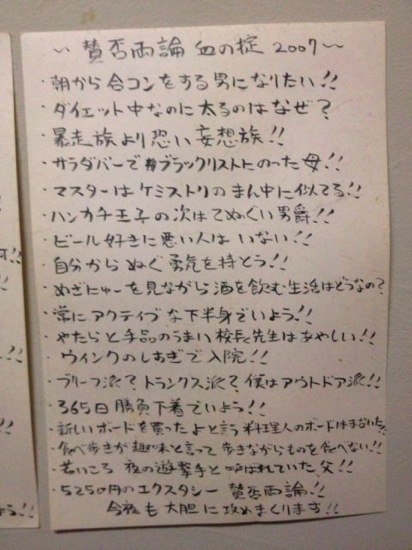 〜 賛否両論 血の掟 2007〜
・朝から合コンをする男になりたい!!
・ダイエット中なのに太るのはなぜ?
・暴走族より恐い妄想族!!
・サラダバーでブラックリストにのった母!!
・マスターはケミストリのまん中に似てる!!
・ハンカチ王子の次はてぬぐい男爵!!
・ビール好きに悪い人はいない!!
・自分からぬぐ勇気を持とう!!
・めざにゅーを見ながら酒を飲む生活はどうなの?
・常にアクティブな下半身でいよう!!
・やたらと手品のうまい校長先生はあやしい!!
・ウインクのしすぎで入院!!
・ブリーフ派?トランクス派?僕はアウトドア派!!
・365日勝負下着でいよう!!
・新しいボードを買ったよと言う料理人のボードはまないた!!
・食べ歩きが趣味と言って歩きながらものを食べない!!
・若いころ夜の遊撃手と呼ばれていた父!!
・5250円のエクスタシー 賛否両論!!
今夜も大胆に攻めまくります!!